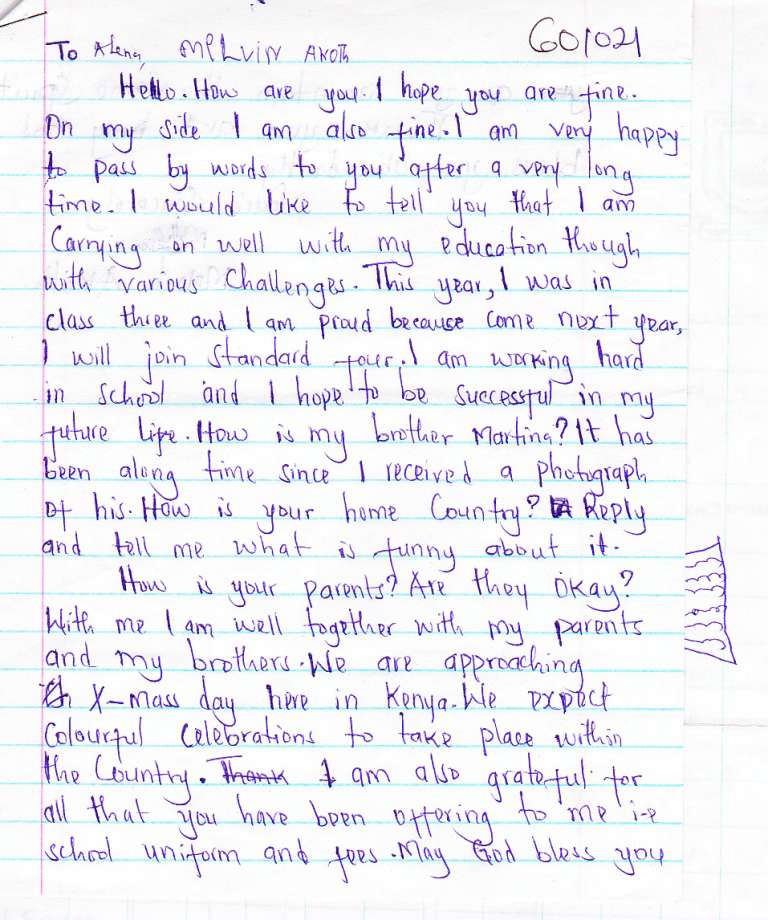 To Alena, MELVIN AKOTH GO1021
Hello. How are you. I hope you are fine.
On my side I am also fine. I am very happy
to pass by words to you after a very long
time. I would like to tell you that I am
Carrying on well with my education though
with various Challenges. This year, I was in
class three and I am proud because come next year,
I will join Standard four. I am working hard
in school and I hope to be successful in my
future life. How is my brother Martina? It has
been along time since I received a photograph
of his. How is your home Country? Reply
and tell me what is funny about it.
How is your parents? Are they okay?
With me I am well together with my parents
and my brothers. We are approaching
X-mass day here in Kenya. We expect
Colourful Celebrations to take place within
the Country. Thank I am also grateful for
all that you have been offering to me i-e
school uniform and fees. May God bless you